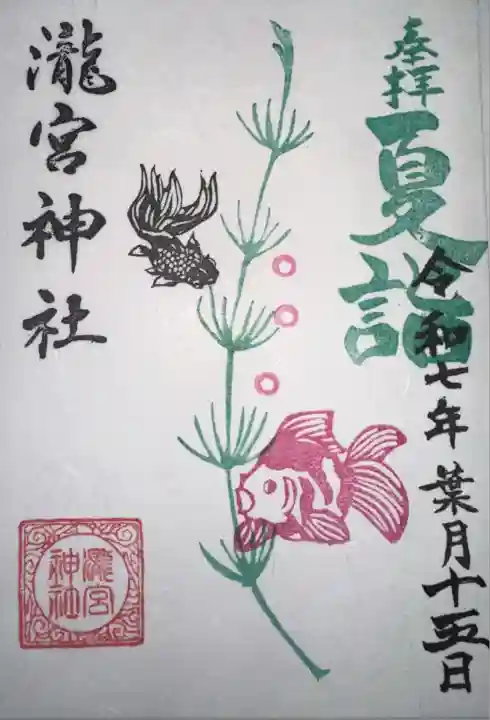 奉拝
夏詣
令和七年葉月十五日
瀧宮神社
瀧宮
神社